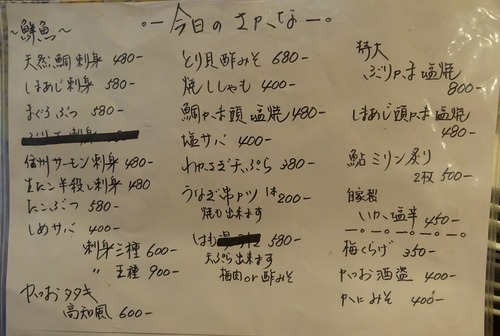 。ー今日のさかなー。
〜鮮魚〜
天然鯛刺身 480-
しまあじ刺身 580-
まぐろぶつ 580-
信州サーモン刺身 480-
生たこ半殺し刺身 480-
たこぶつ 580-
しめサバ 400-
刺身三種 600-
〃 五種 900-
かつおタタキ
高知風 600-
とり貝酢みそ 680-
焼ししゃも 400-
鯛かま頭塩焼 480-
塩サバ 400-
わかさぎ天ぷら 380-
うなぎ串カツ 1本 200-
焼も出来ます
はも 580-
天ぷら出来ます
梅肉or酢みそ
特大
ぶりかま塩焼
800-
しまあじ頭かま塩焼
480-
鮎ミリン炙り
2枚 500-
自家製
いか塩辛 450-
梅くらげ 350-
かつお酒盗 400-
かにみそ 400-